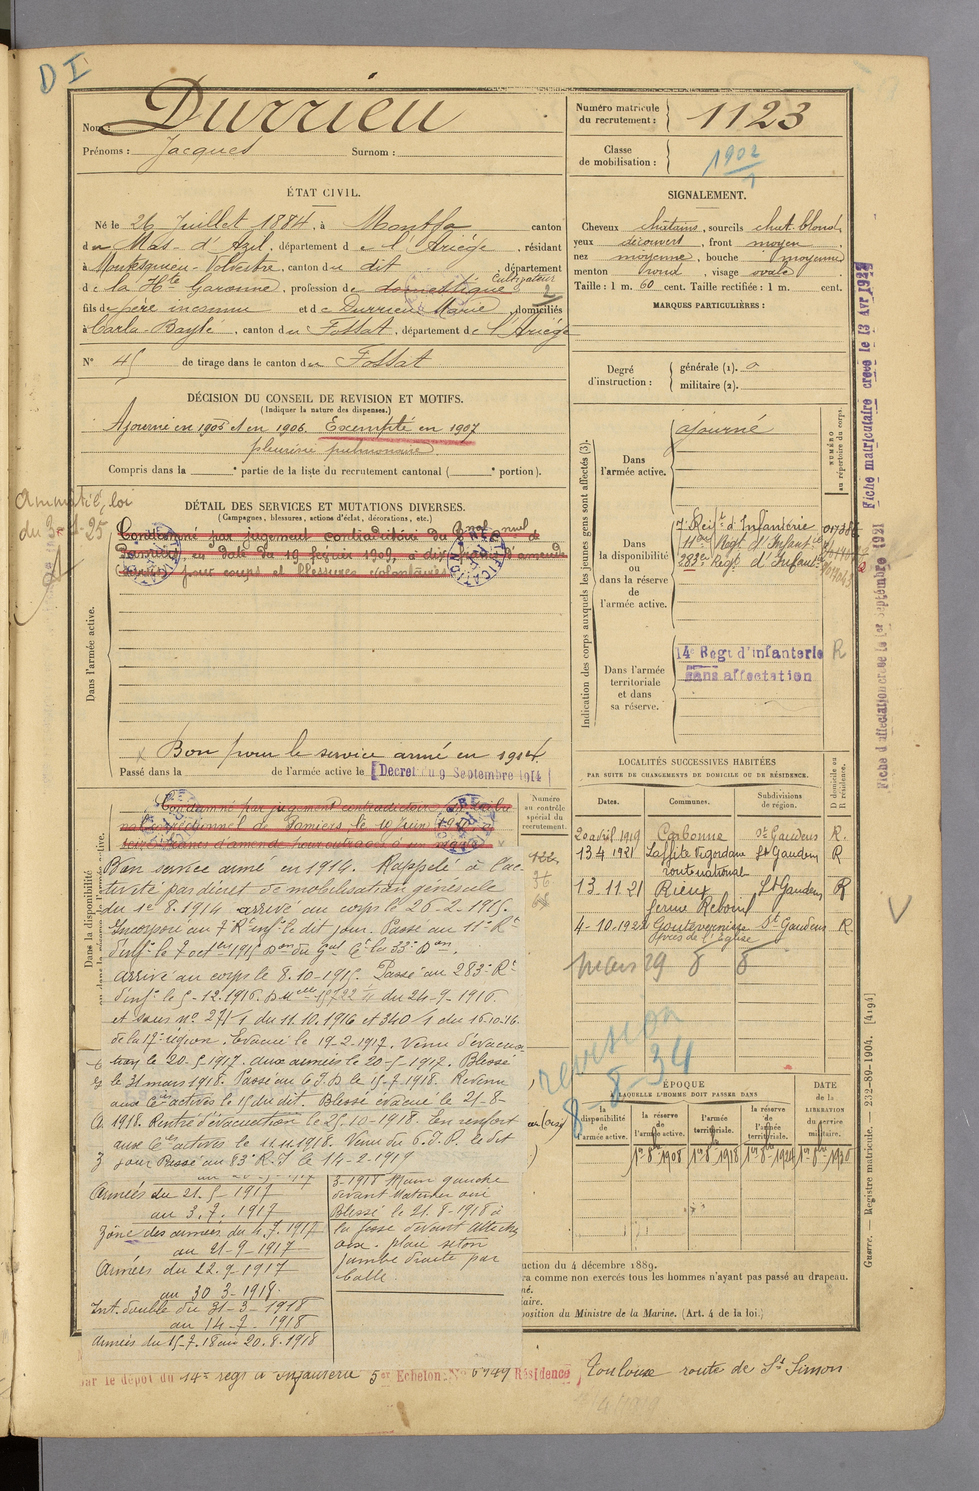 D I
Nom : Durrieu
Prénoms : Jacques Surnom :
Numéro matricule du recrutement : 1123
Classe de mobilisation : 1902
ÉTAT CIVIL.
Né le 26 Juillet 1884, à Montfa canton
du Mas-d'Azil, département de l'Ariège, résidant
à Montesquieu-Volvestre, canton du dit département
de la Hte Garonne, profession de domestique Cultivateur
fils de père inconnu et de Durrieu Marie, domiciliés
à Carla-Bayle, canton du Fossat, département de l'Ariège
N° 45 de tirage dans le canton du Fossat
SIGNALEMENT.
Cheveux châtains, sourcils chat. blond,
yeux découvert, front moyen,
nez moyenne, bouche moyenne,
menton rond, visage ovale
Taille : 1 m. 60 cent. Taille rectifiée : 1 m. cent.
MARQUES PARTICULIÈRES :
Degré d'instruction : générale (1). 0
militaire (2).
DÉCISION DU CONSEIL DE REVISION ET MOTIFS.
(Indiquer la nature des dispenses.)
Ajourné en 1905 et en 1906. Exempté en 1907
pleurésie pulmonaire
Compris dans la e partie de la liste du recrutement cantonal ( e portion).
DÉTAIL DES SERVICES ET MUTATIONS DIVERSES.
(Campagnes, blessures, actions d'éclat, décorations, etc.)
Amnistié, loi
du 3-1-25
Condamné par jugement contradictoire du
en date du 19 février 1902, à d'amende
pour coups et blessures volontaires
Dans l'armée active.
Bon pour le service armé en 1914
Passé dans la de l'armée active le Decret du 9 Septembre 1914
Indication des corps auxquels les jeunes gens sont affectés (3).
NUMÉRO au répertoire du corps.
Dans l'armée active. ajourné
Dans la disponibilité ou dans la réserve de l'armée active.
7e Régt d'Infanterie
11e Régt d'Infantie
283e Régt d'Infantie
Dans l'armée territoriale et dans sa réserve.
14e Régt d'infanterie R
Sans affectation
Fiche matriculaire créée le 13 Avr 1922
Fiche d'affectation créée le 1er Septembre 1921
Condamné par jugement contradictoire
correctionnel de Pamiers, le 10 Juin
francs d'amende pour outrages à un
Numéro au contrôle spécial du recrutement.
Dans la disponibilité
Bon service armé en 1914. Rappelé à l'ac-
tivité par décret de mobilisation générale
du 1er 8.1914 arrivé au corps le 26-2-1915.
Incorporé au 7e R. inf. le dit jour. Passé au 11e Rt
d'inf. le 7 octbre 1915
arrivé au corps le 8.10-1915. Passé au 283e Rt
d'inf. le 5-12.1916. du 24-9-1916
et sous n° 271/1 du 11.10.1916 et 340/1 du 16.10.16.
de la 17e région. Evacué le 19-2-1917. Venu d'évacua-
tion le 20-5-1917. aux armées le 20-5-1917. Blessé
le 31 mars 1918. Passé au 6e D le 15-7-1918. Revenu
aux Cies actives le 15 du dit. Blessé évacué le 21-8-
1918. Rentré d'évacuation le 25-10-1918. En renfort
aux Cies actives le 11.11.1918. Venu du 6. D. le dit
jour Passé au 83e R.I le 14-2-1919
Armées du 21-5-1917
au 3.7.1917
Zône des armées du 4.7.1917
au 21-9-1917
Armées du 22-9-1917
au 30 3-1918
Int. double du 31-3-1918
au 14-7-1918
Armées du 15-7-18 au 20.8.1918
3-1918 Main gauche
devant
Blessé le 21.8-1918 à
la fosse devant Attichy
oise. plaie séton
jambe droite par
balle.
LOCALITÉS SUCCESSIVES HABITÉES
PAR SUITE DE CHANGEMENTS DE DOMICILE OU DE RÉSIDENCE.
Dates. Communes. Subdivisions de région. D domicile ou R résidence.
20 avril 1919 Carbonne St Gaudens R.
13 4 1921 Laffite Vigordane St Gaudens R
route national
13-11-21 Rieux St Gaudens R
ferme Reboul
4-10-1922 Goutevernisse St Gaudens R
Près de l'Eglise
Mars 29
revision
8-8-34
ÉPOQUE
À LAQUELLE L'HOMME DOIT PASSER DANS
la disponibilité de l'armée active.
la réserve de l'armée active.
l'armée territoriale.
la réserve de l'armée territoriale.
DATE de la LIBÉRATION du service militaire.
1er 8bre 1908 1er 8bre 1918 1er 8bre 1924 1er 8bre 1930
uction du 4 décembre 1889.
ra comme non exercés tous les hommes n'ayant pas passé au drapeau.
position du Ministre de la Marine. (Art. 4 de la loi.)
Guerre. — Registre matricule. — 232-89-1904. [4194]
par le dépôt du 14e régt d'infanterie 5er Echelon N° 6949 Résidence Toulouse route de St Simon